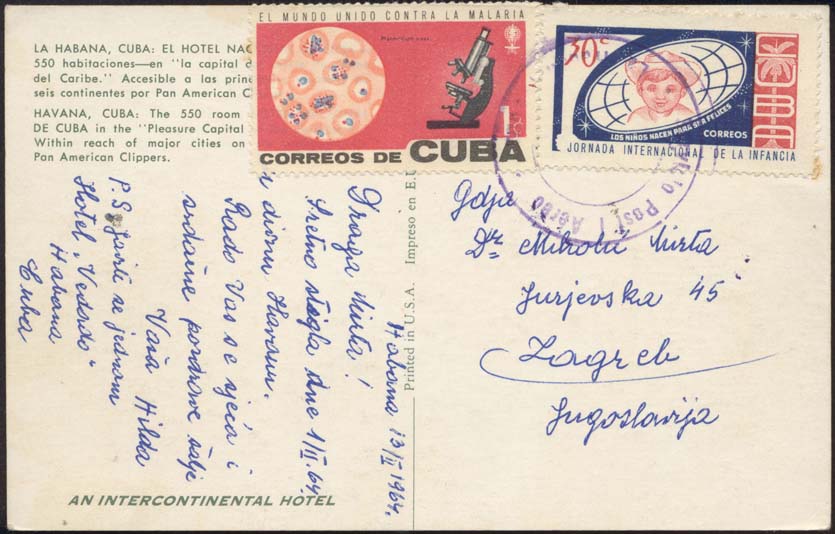 LA HABANA, CUBA: EL HOTEL NAC
550 habitaciones—en "la capital
del Caribe." Accesible a las prin
seis continentes por Pan American C
HAVANA, CUBA: The 550 room
DE CUBA in the "Pleasure Capital
Within reach of major cities on
Pan American Clippers.
EL MUNDO UNIDO CONTRA LA MALARIA
1c
CORREOS DE CUBA
30c
CUBA
LOS NIÑOS NACEN PARA SER FELICES
CORREOS
JORNADA INTERNACIONAL DE LA INFANCIA
Post Aereo
Habana 13/II 1964.
Draga Mirta!
Sretno stigla dne 1/II. 64.
u divnu Havanu.
Rado Vas se sjeća i
srdačne pozdrave šalje
Vaša Hilda
P.S. Javite se jednom
Hotel „Vedado"
Habana
Cuba
Printed in U.S.A. Impreso en E.U.
Gdja
Dr Mikolić Mirta
Jurjevska 45
Zagreb
Jugoslavija
AN INTERCONTINENTAL HOTEL